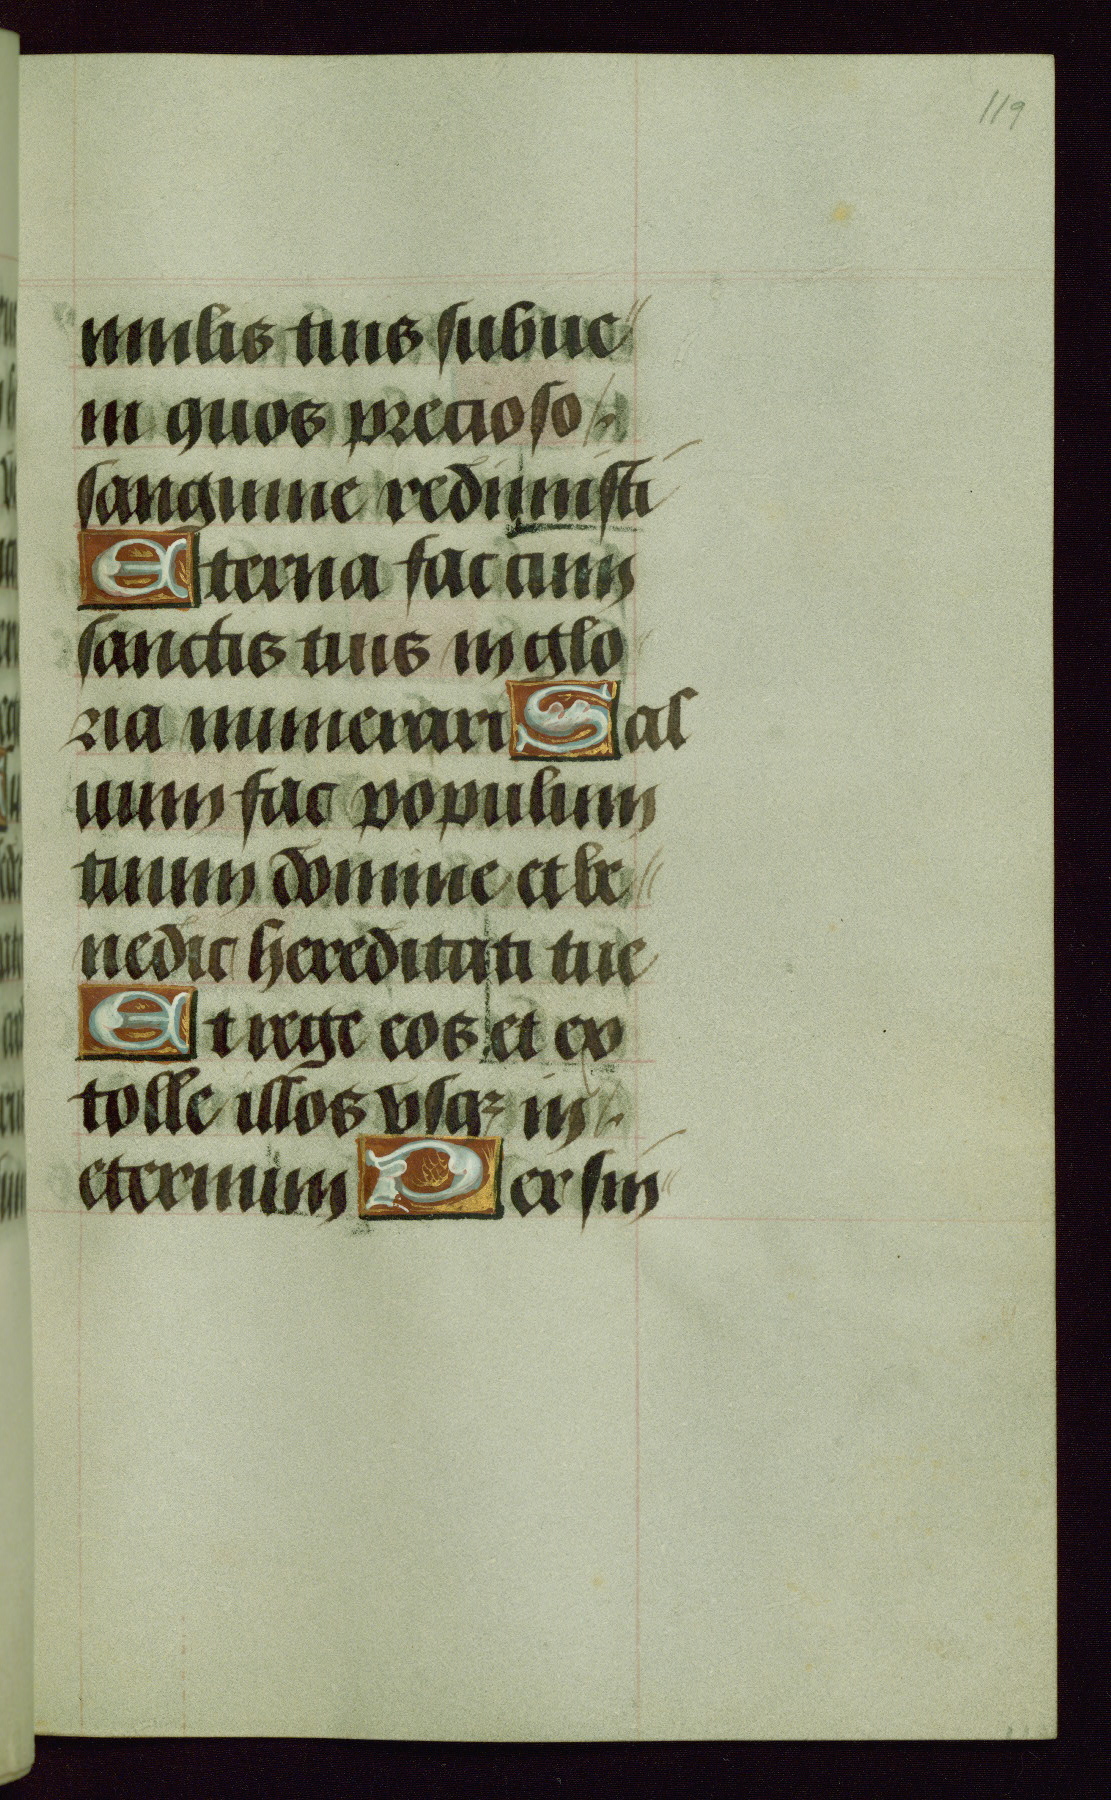 119
mulis tuis subue
ni quos precioso
sanguine redimisti
Eterna fac cum
sanctis tuis in glo
ria numerari Sal
uum fac populum
tuum domine et be
nedic hereditati tue
Et rege eos et ex
tolle illos vsqꝫ in
eternum Per sin